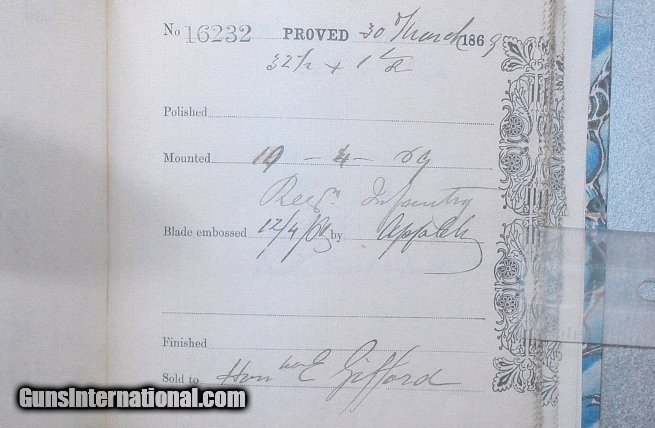 No 16232 PROVED 30 March 1869
32 1/2 x 1 1/2
Polished
Mounted 10 - 4 - 69
Regn. Infantry
Blade embossed 12/4/69 by
Finished
Sold to Honble E Gifford
GunsInternational.com